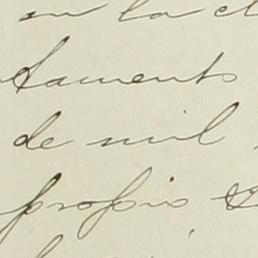 en la c
tamento
de mil
propio